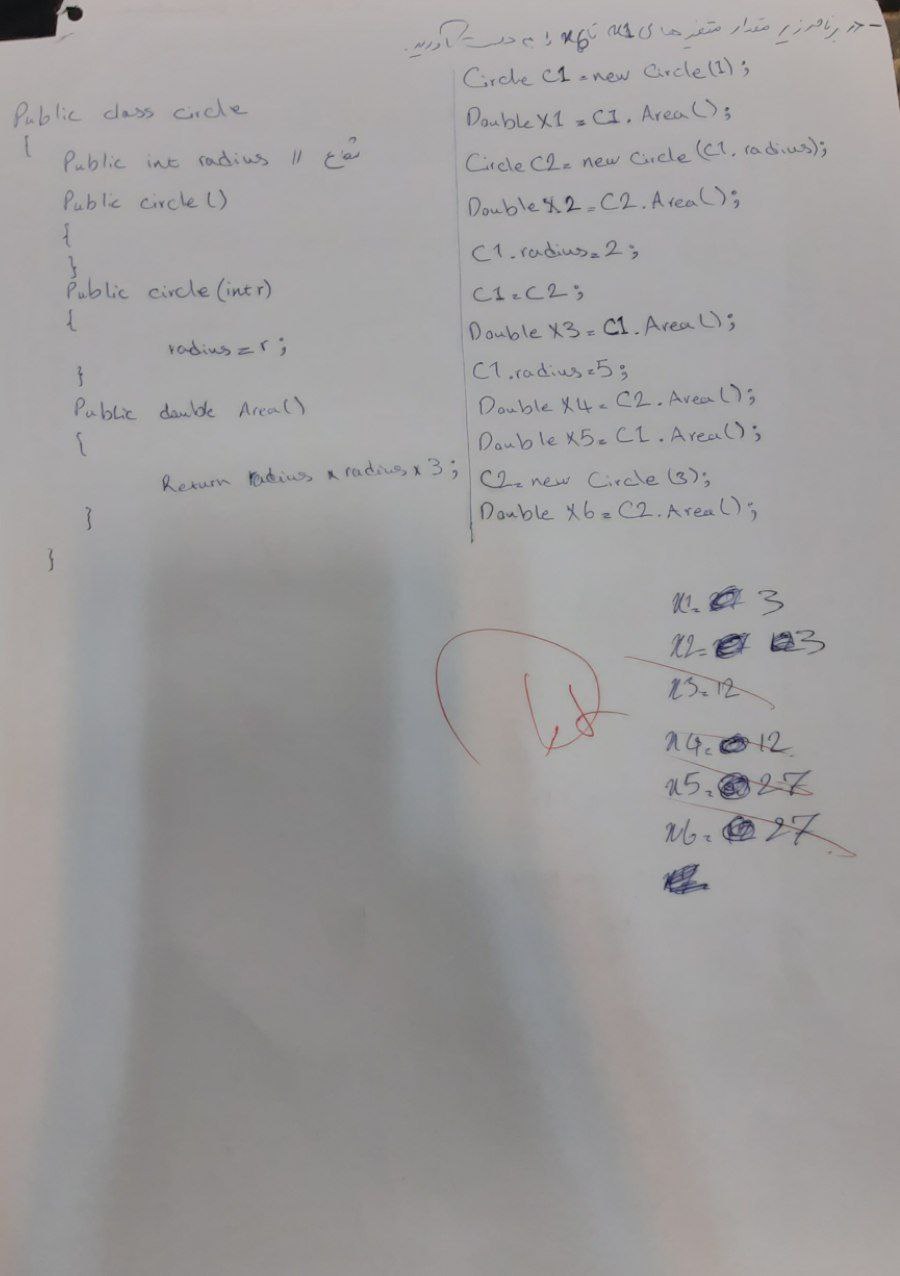 - در برنامه زیر مقدار متغیر های x1 تا x6 را به دست آورید.
Public class circle
{
Public int radius // شعاع
Public circle()
{
}
Public circle(int r)
{
radius = r ;
}
Public double Area()
{
Return radius * radius * 3 ;
}
}
Circle C1 = new Circle(1) ;
Double X1 = C1. Area() ;
Circle C2 = new Circle (C1. radius) ;
Double X2 = C2. Area() ;
C1. radius = 2 ;
C1 = C2 ;
Double X3 = C1. Area() ;
C1. radius = 5 ;
Double X4 = C2. Area() ;
Double X5 = C1. Area() ;
C2 = new Circle (3) ;
Double X6 = C2. Area() ;
x1 = 3
x2 = 3
x3 = 12
x4 = 12
x5 = 27
x6 = 27